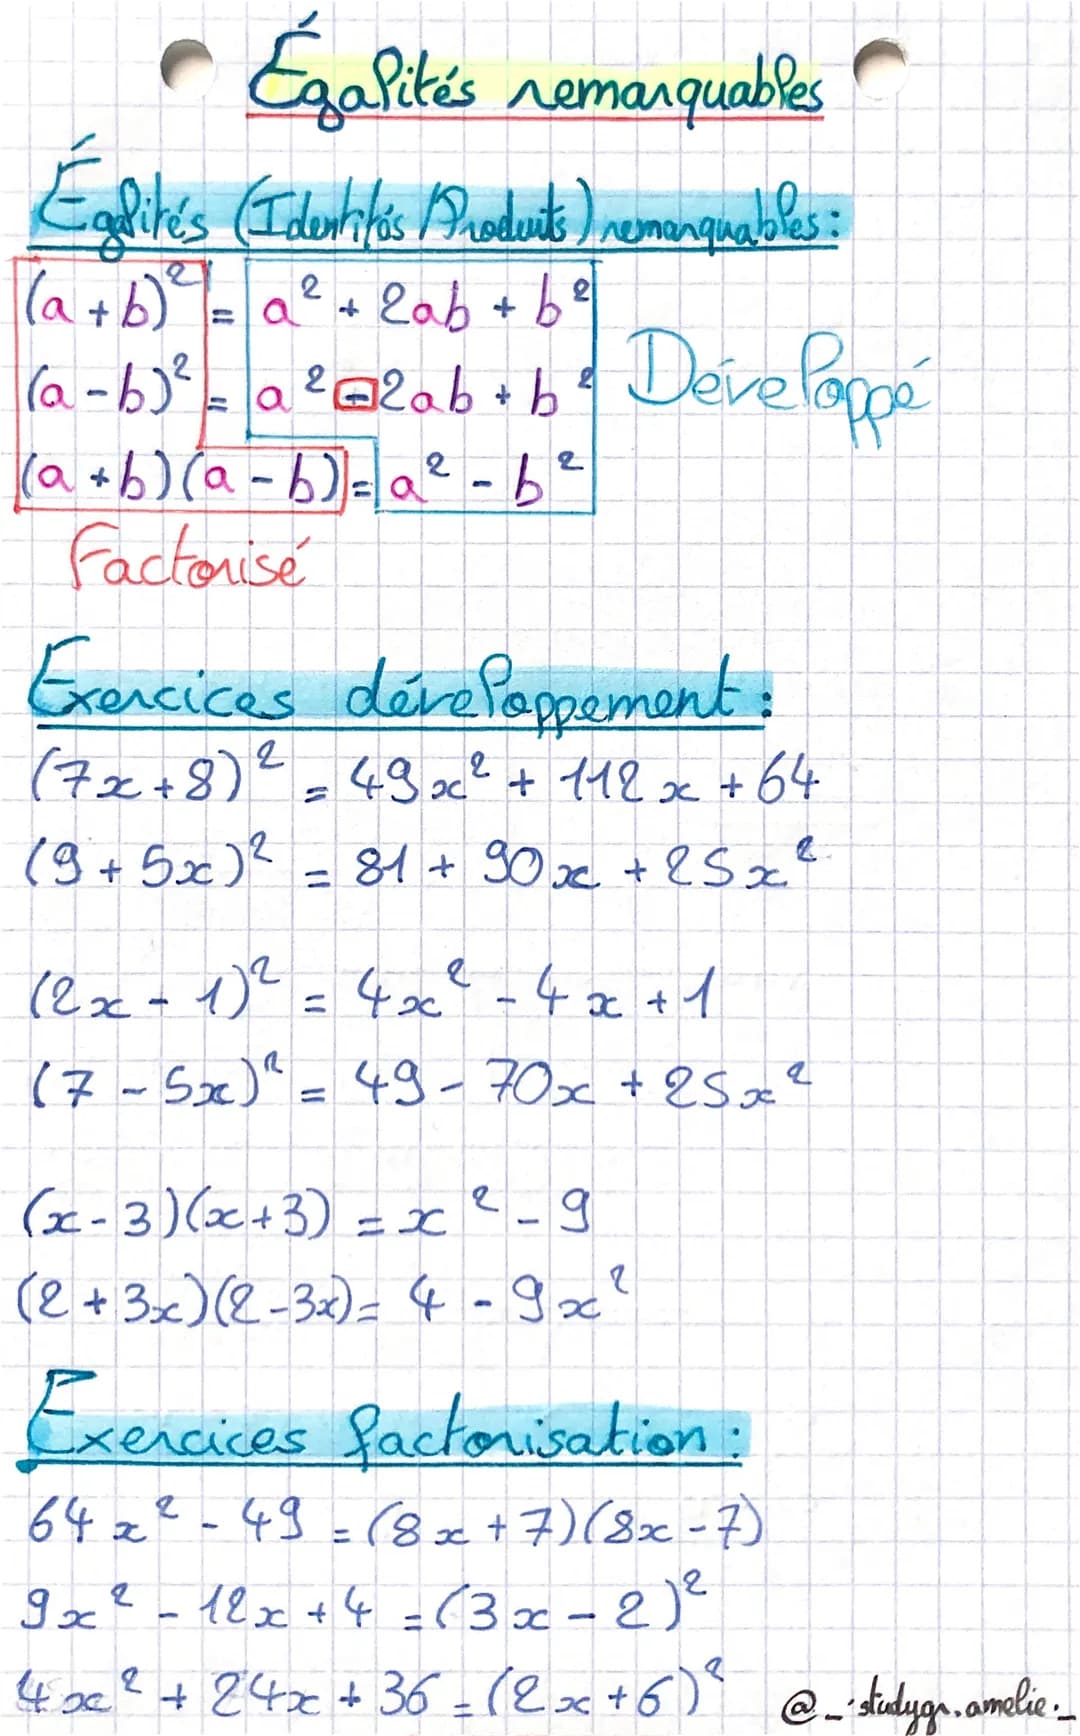 Égalités remarquables
Égalités (Identités/Produits) remarquables :
(a + b)² = a² + 2ab + b²
(a - b)² = a² - 2ab + b²
Développé
(a + b)(a - b) = a² - b²
Factorisé
Exercices développement :
(7x + 8)² = 49x² + 112x + 64
(9 + 5x)² = 81 + 90x + 25x²
(2x - 1)² = 4x² - 4x + 1
(7 - 5x)² = 49 - 70x + 25x²
(x - 3)(x + 3) = x² - 9
(2 + 3x)(2 - 3x) = 4 - 9x²
Exercices factorisation :
64x² - 49 = (8x + 7)(8x - 7)
9x² - 12x + 4 = (3x - 2)²
4x² + 24x + 36 = (2x + 6)²
@_.studygr.amelie._